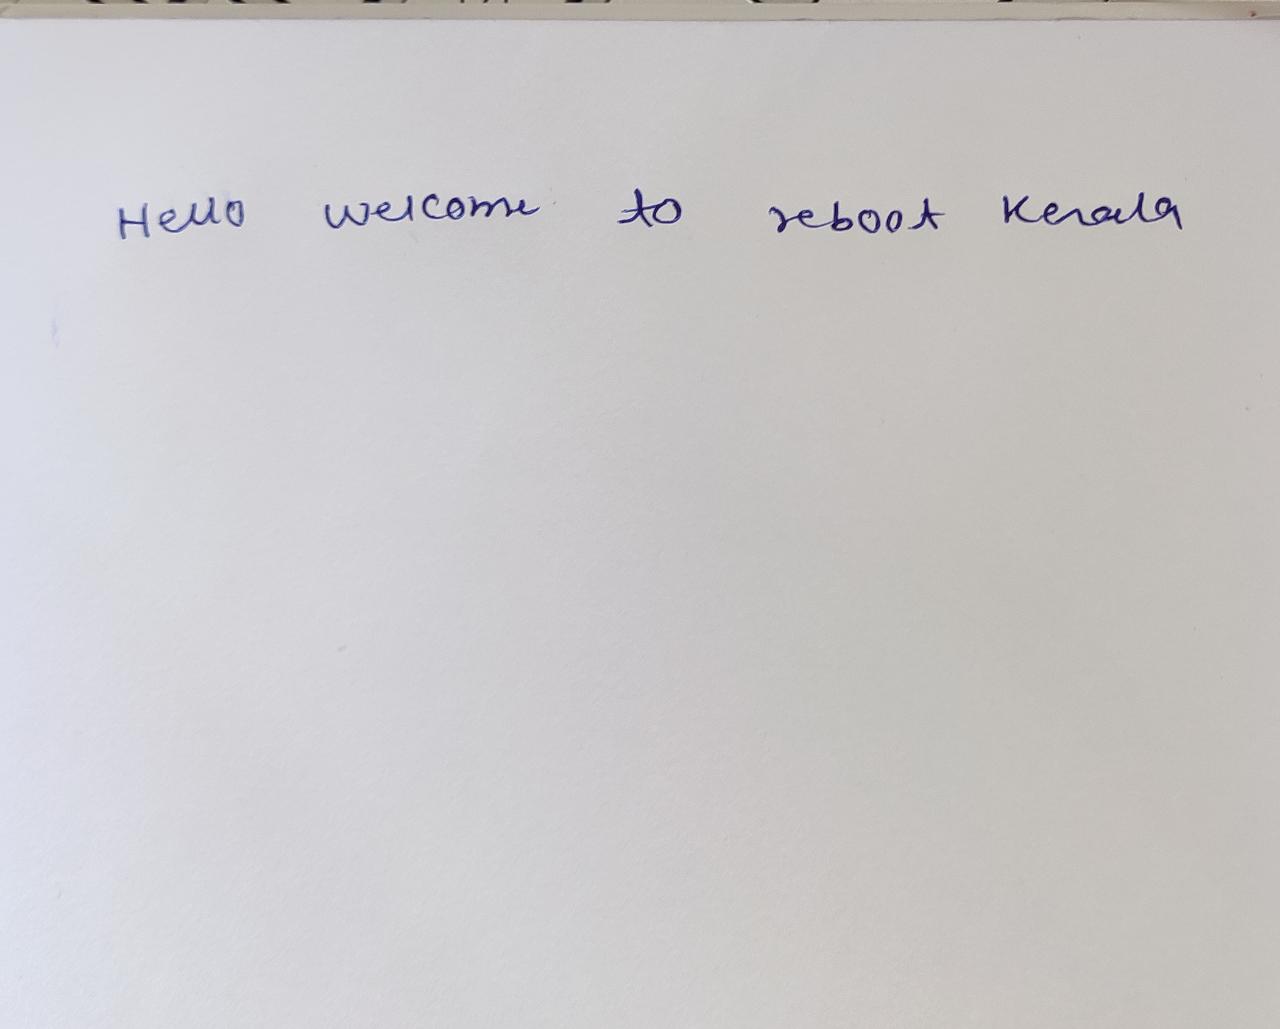 Hello welcome to reboot Kerala